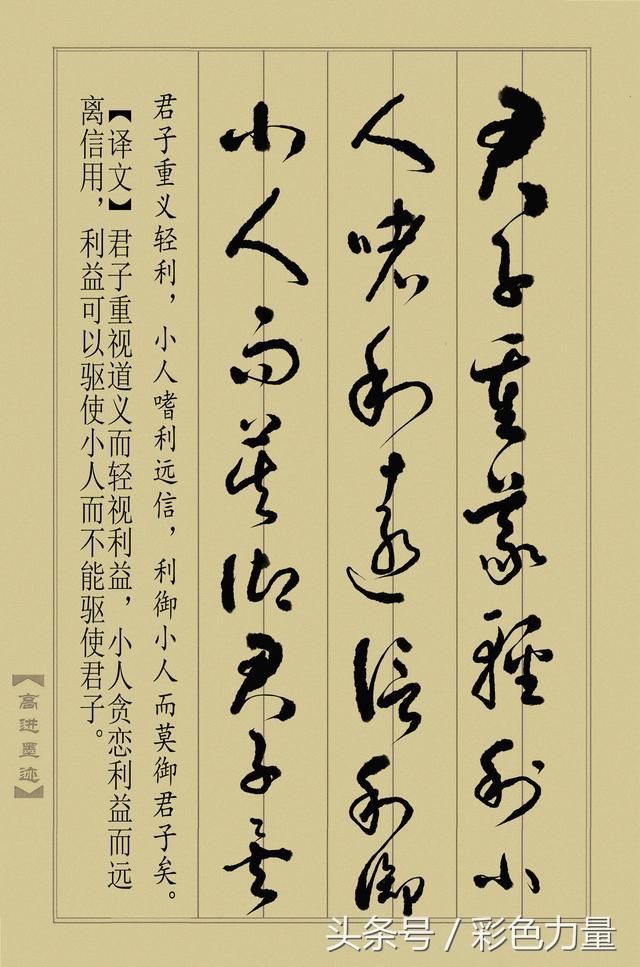 君子重義輕利小
人嗜利遠信利御
小人而莫御君子矣
君子重义轻利，小人嗜利远信，利御小人而莫御君子矣。
【译文】君子重视道义而轻视利益，小人贪恋利益而远
离信用，利益可以驱使小人而不能驱使君子。
【高进墨迹】
头条号 / 彩色力量